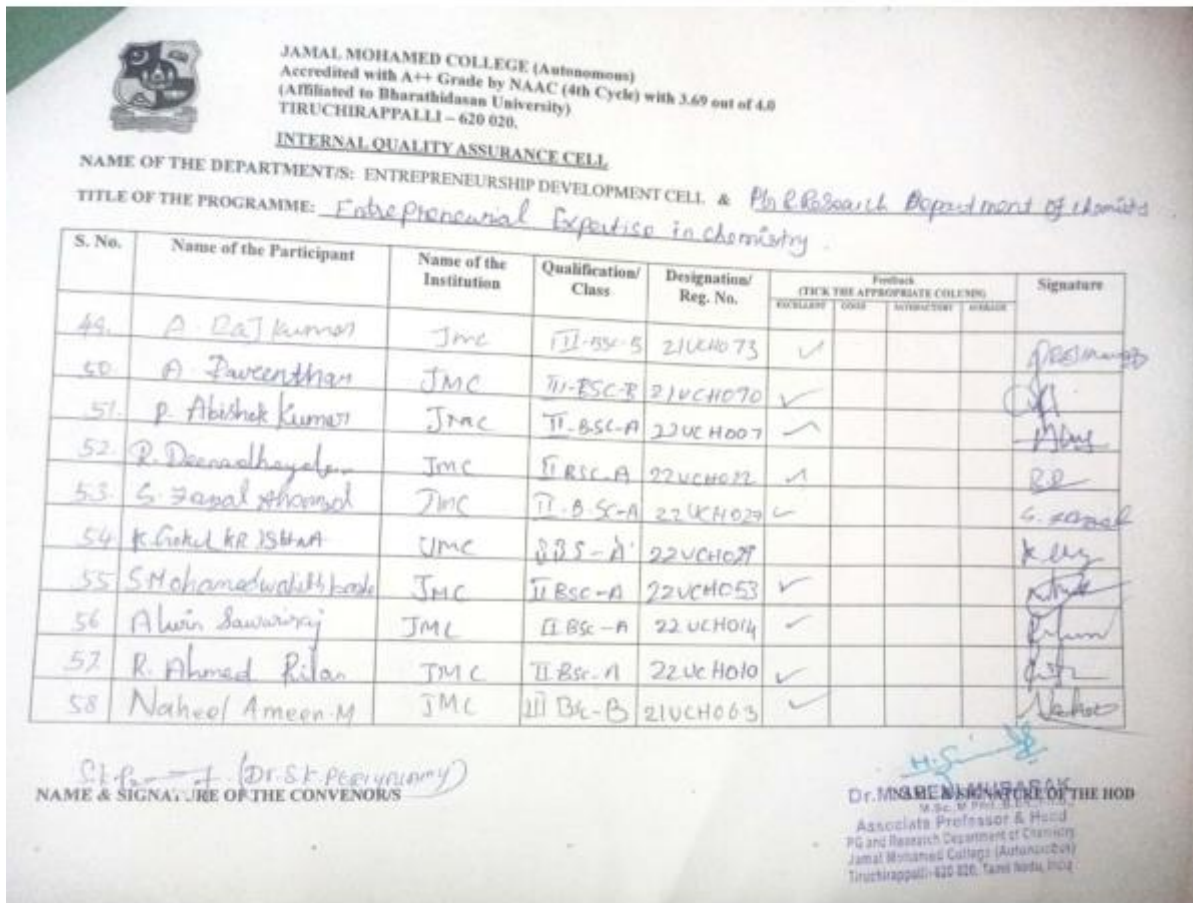 JAMAL MOHAMED COLLEGE (Autonomous)
Accredited with A++ Grade by NAAC (4th Cycle) with 3.69 out of 4.0
(Affiliated to Bharathidasan University)
TIRUCHIRAPPALLI – 620 020.
INTERNAL QUALITY ASSURANCE CELL
NAME OF THE DEPARTMENT/S: ENTREPRENEURSHIP DEVELOPMENT CELL & PG & Research Department of chemistry
TITLE OF THE PROGRAMME: Entrepreneurial Expertise in chemistry.
S. No. Name of the Participant Name of the Institution Qualification/ Class Designation/ Reg. No. Feedback (TICK THE APPROPRIATE COLUMN) Signature
EXCELLENT GOOD SATISFACTORY AVERAGE
49. A. Raj kumar Jmc III-BSc-B 21UCH073 ✓
50. A. Paveenthan JMC III-BSC-B 21UCH070 ✓
51. P. Abishek Kumar Jmc II-BSC-A 22UCH007 ✓
52. R. Deenadhayalan Jmc II BSC-A 22UCH022 ✓
53. S. Fazal Ahamed JMC II-B.SC-A 22UCH027 ✓ S. Fazal
54 K. Gokul KRISHNA JMC 22UCH029
55 S Mohamed JMC II BSc-A 22UCH053 ✓
56 Alwin Sawariraj JMC II BSc-A 22UCH014 ✓
57. R. Ahmed Rilan JMC II BSc-A 22UCH010 ✓
58 Naheel Ameen.M JMC III BSc-B 21UCH063 ✓
(Dr. S.K. PERIYASAMY)
NAME & SIGNATURE OF THE CONVENOR/S
NAME & SIGNATURE OF THE HOD
Associate Professor & Head
PG and Research Department of Chemistry
Jamal Mohamed College (Autonomous)
Tiruchirappalli-620 020, Tamil Nadu, India